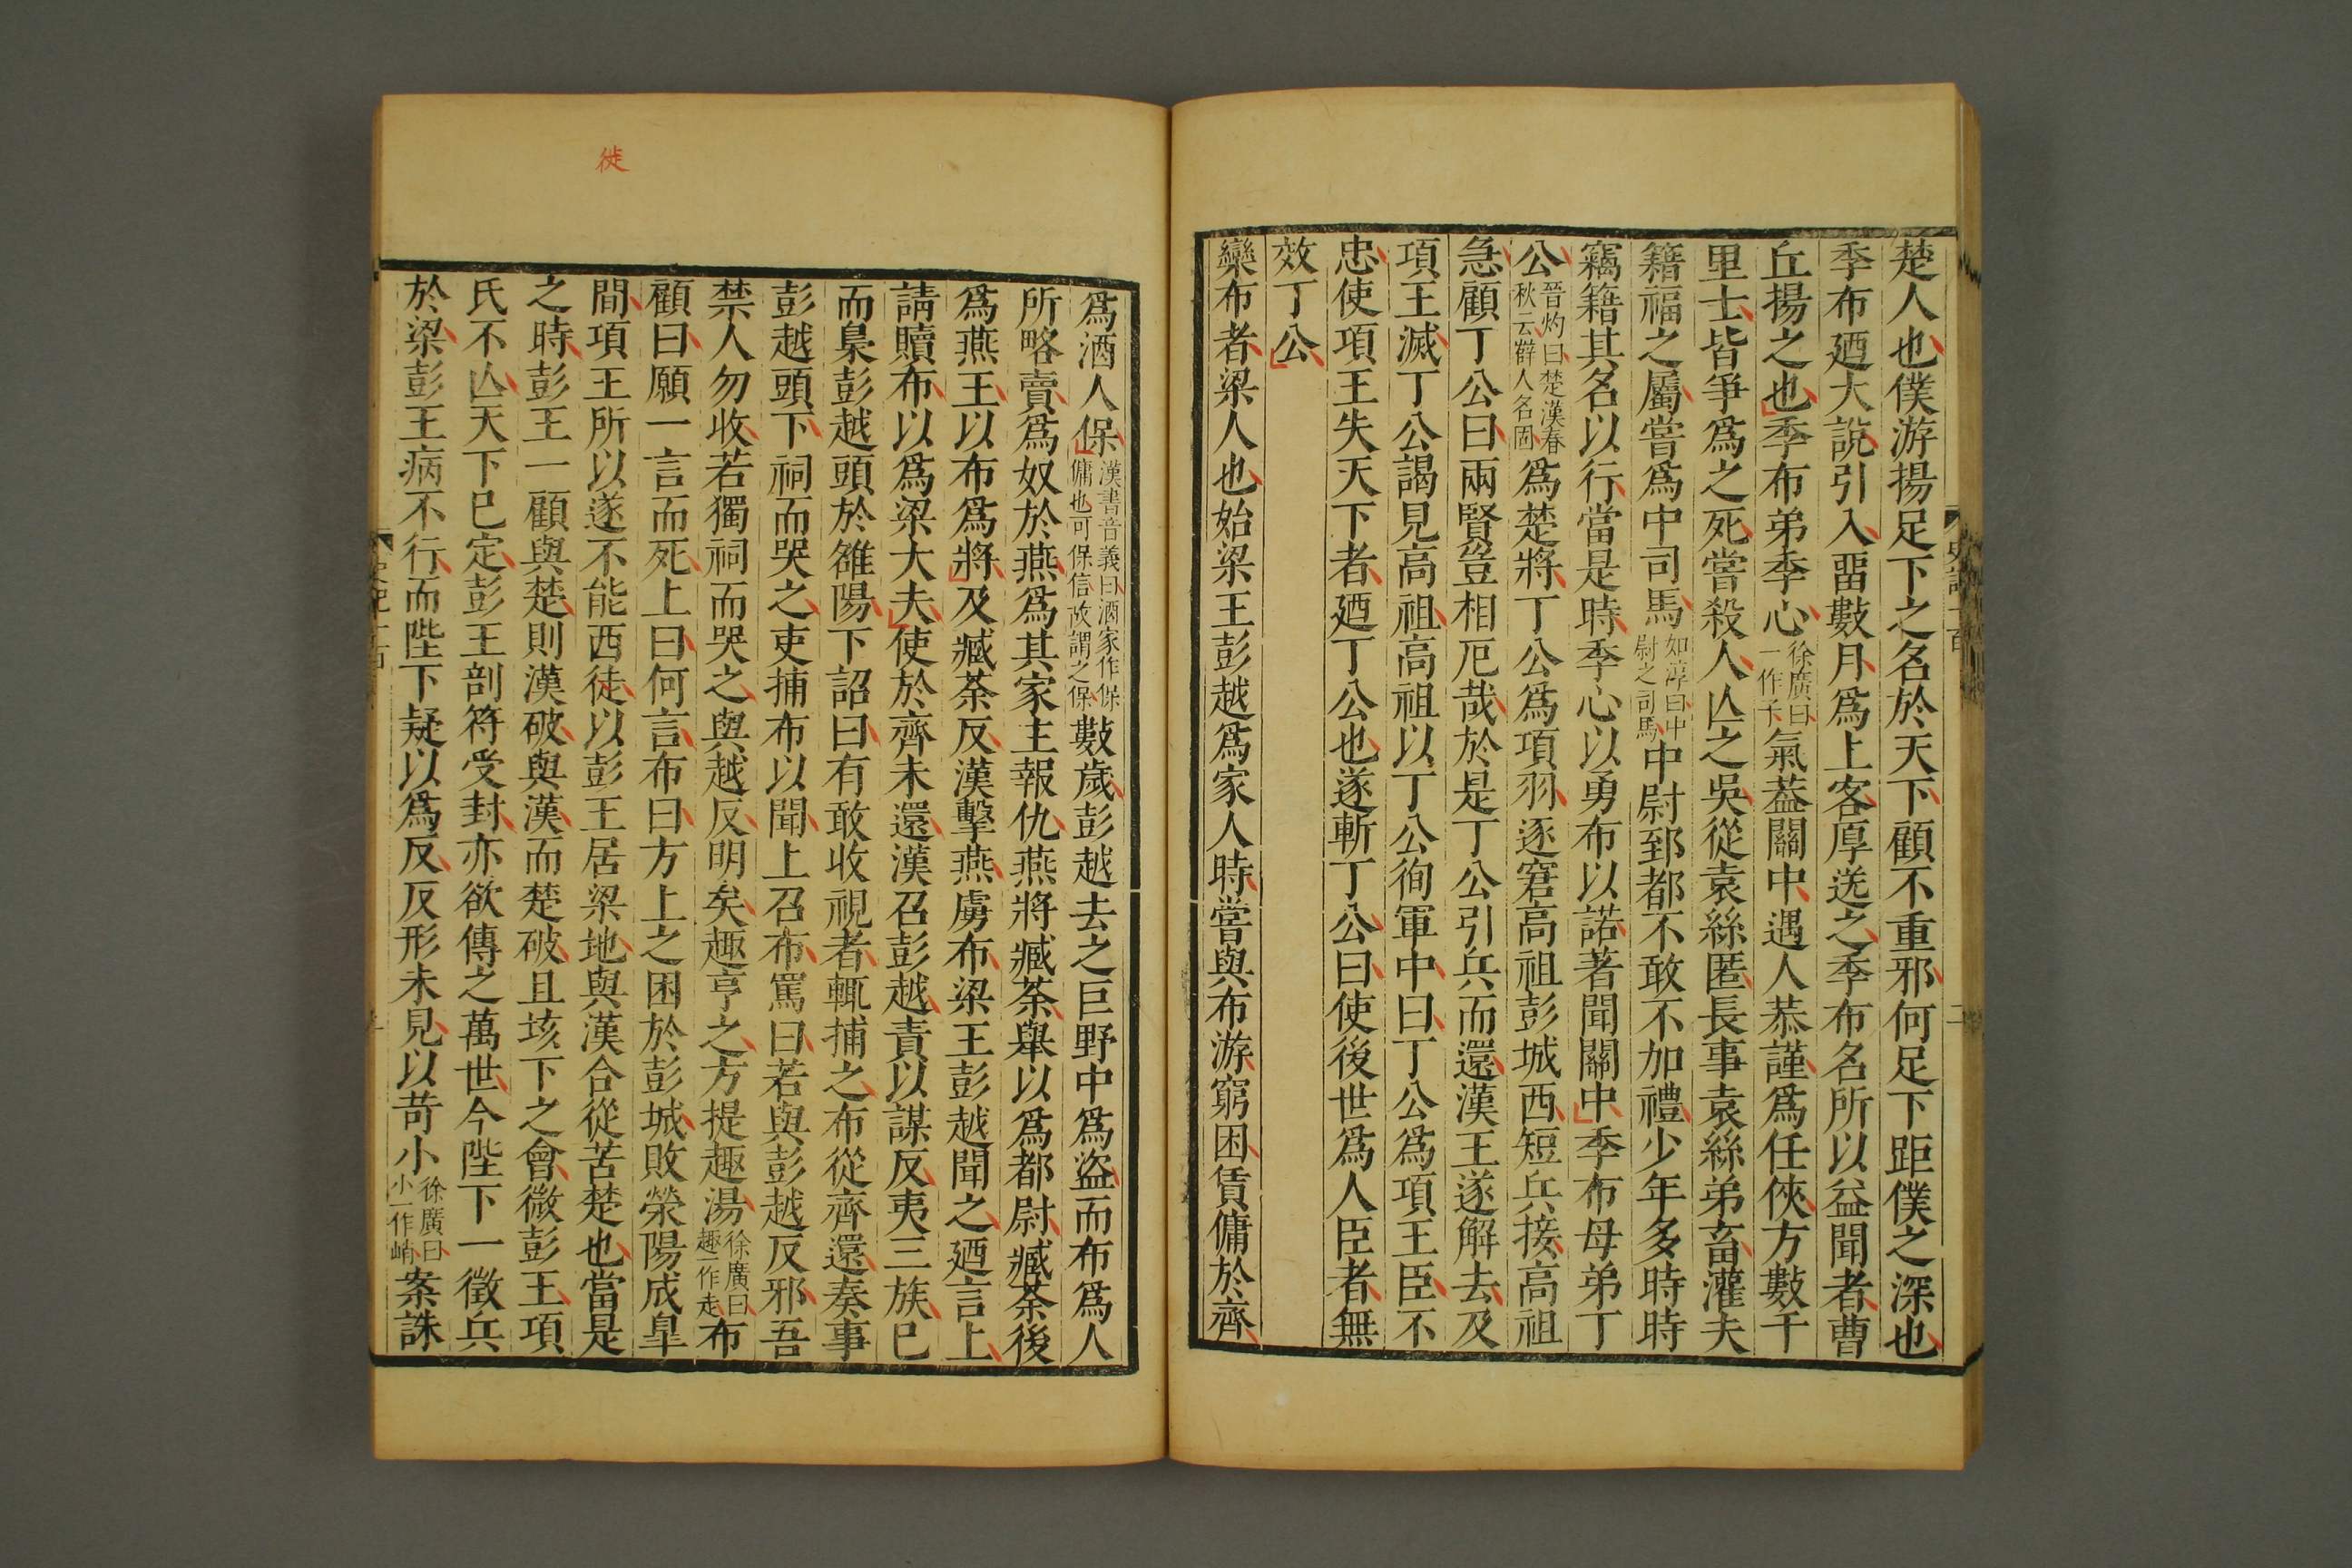 楚人也僕游揚足下之名於天下顧不重邪何足下距僕之深也
季布廼大說引入畱數月爲上客厚送之季布名所以益聞者曹
丘揚之也季布弟季心徐廣曰一作子氣葢關中遇人恭謹爲任俠方數千
里士皆爭爲之死嘗殺人亾之吳從袁絲匿長事袁絲弟畜灌夫
籍福之屬嘗爲中司馬如淳曰中尉之司馬中尉郅都不敢不加禮少年多時時
竊籍其名以行當是時季心以勇布以諾著聞關中季布母弟丁
公晉灼曰楚漢春秋云薛人名固爲楚將丁公爲項羽逐窘高祖彭城西短兵接高祖
急顧丁公曰兩賢豈相厄哉於是丁公引兵而還漢王遂解去及
項王滅丁公謁見高祖高祖以丁公徇軍中曰丁公爲項王臣不
忠使項王失天下者廼丁公也遂斬丁公曰使後世爲人臣者無
效丁公
欒布者梁人也始梁王彭越爲家人時嘗與布游窮困賃傭於齊
史記一百
二
爲酒人保漢書音義曰酒家作保傭也可保信故謂之保數歲彭越去之巨野中爲盜而布爲人
所略賣爲奴於燕爲其家主報仇燕將臧荼舉以爲都尉臧荼後
爲燕王以布爲將及臧荼反漢擊燕虜布梁王彭越聞之廼言上
請贖布以爲梁大夫使於齊未還漢召彭越責以謀反夷三族已
而梟彭越頭於雒陽下詔曰有敢收視者輒捕之布從齊還奏事
彭越頭下祠而哭之吏捕布以聞上召布罵曰若與彭越反邪吾
禁人勿收若獨祠而哭之與越反明矣趣亨之方提趣湯徐廣曰趣一作走布
顧曰願一言而死上曰何言布曰方上之困於彭城敗滎陽成臯
間項王所以遂不能西徒以彭王居梁地與漢合從苦楚也當是
之時彭王一顧與楚則漢破與漢而楚破且垓下之會微彭王項
氏不亾天下已定彭王剖符受封亦欲傳之萬世今陛下一徵兵
於梁彭王病不行而陛下疑以爲反反形未見以苛小徐廣曰小一作峭案誅
徙